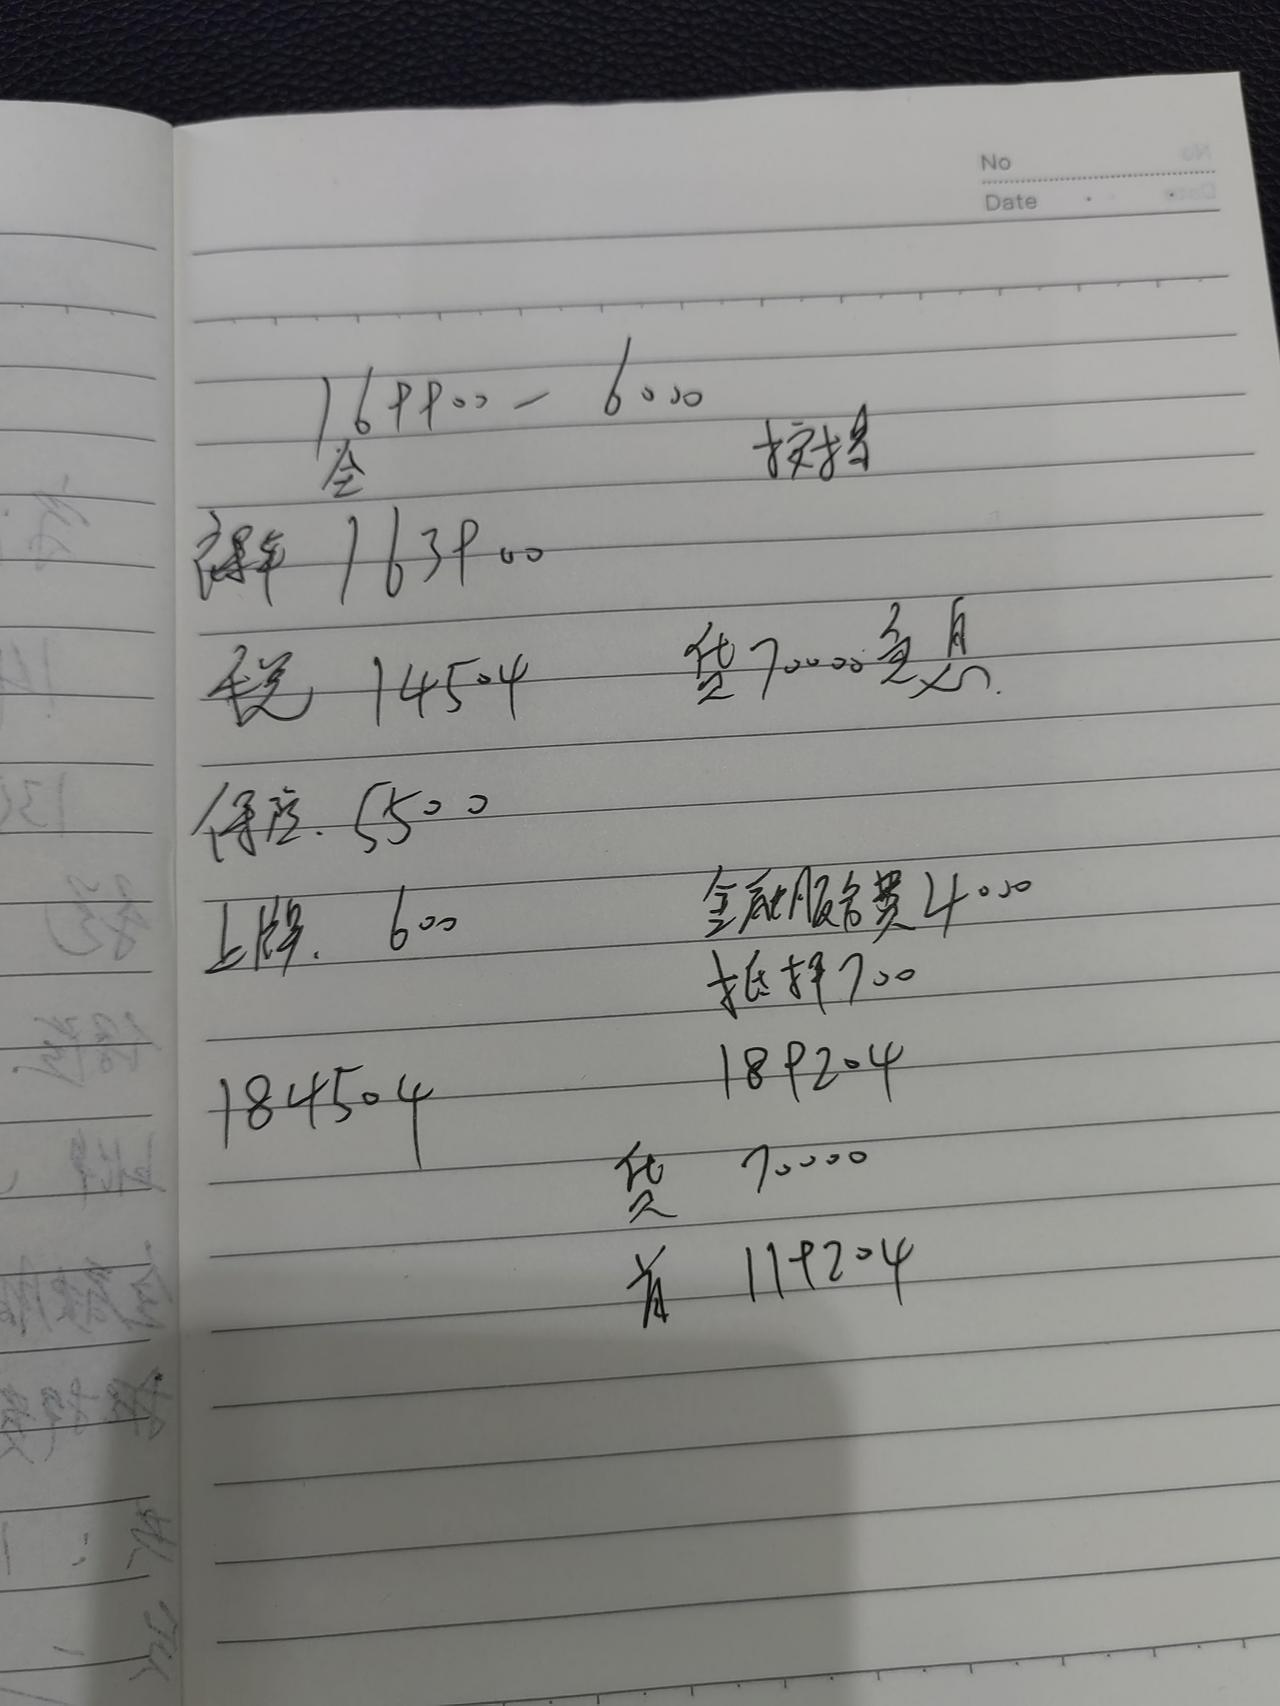 No
Date
169900 - 6000
全
按揭
裸车 163900
税 14504
贷70000免息.
保险. 5500
上牌. 600
金融服务费4000
抵押700
184504
189204
贷 70000
首 119204